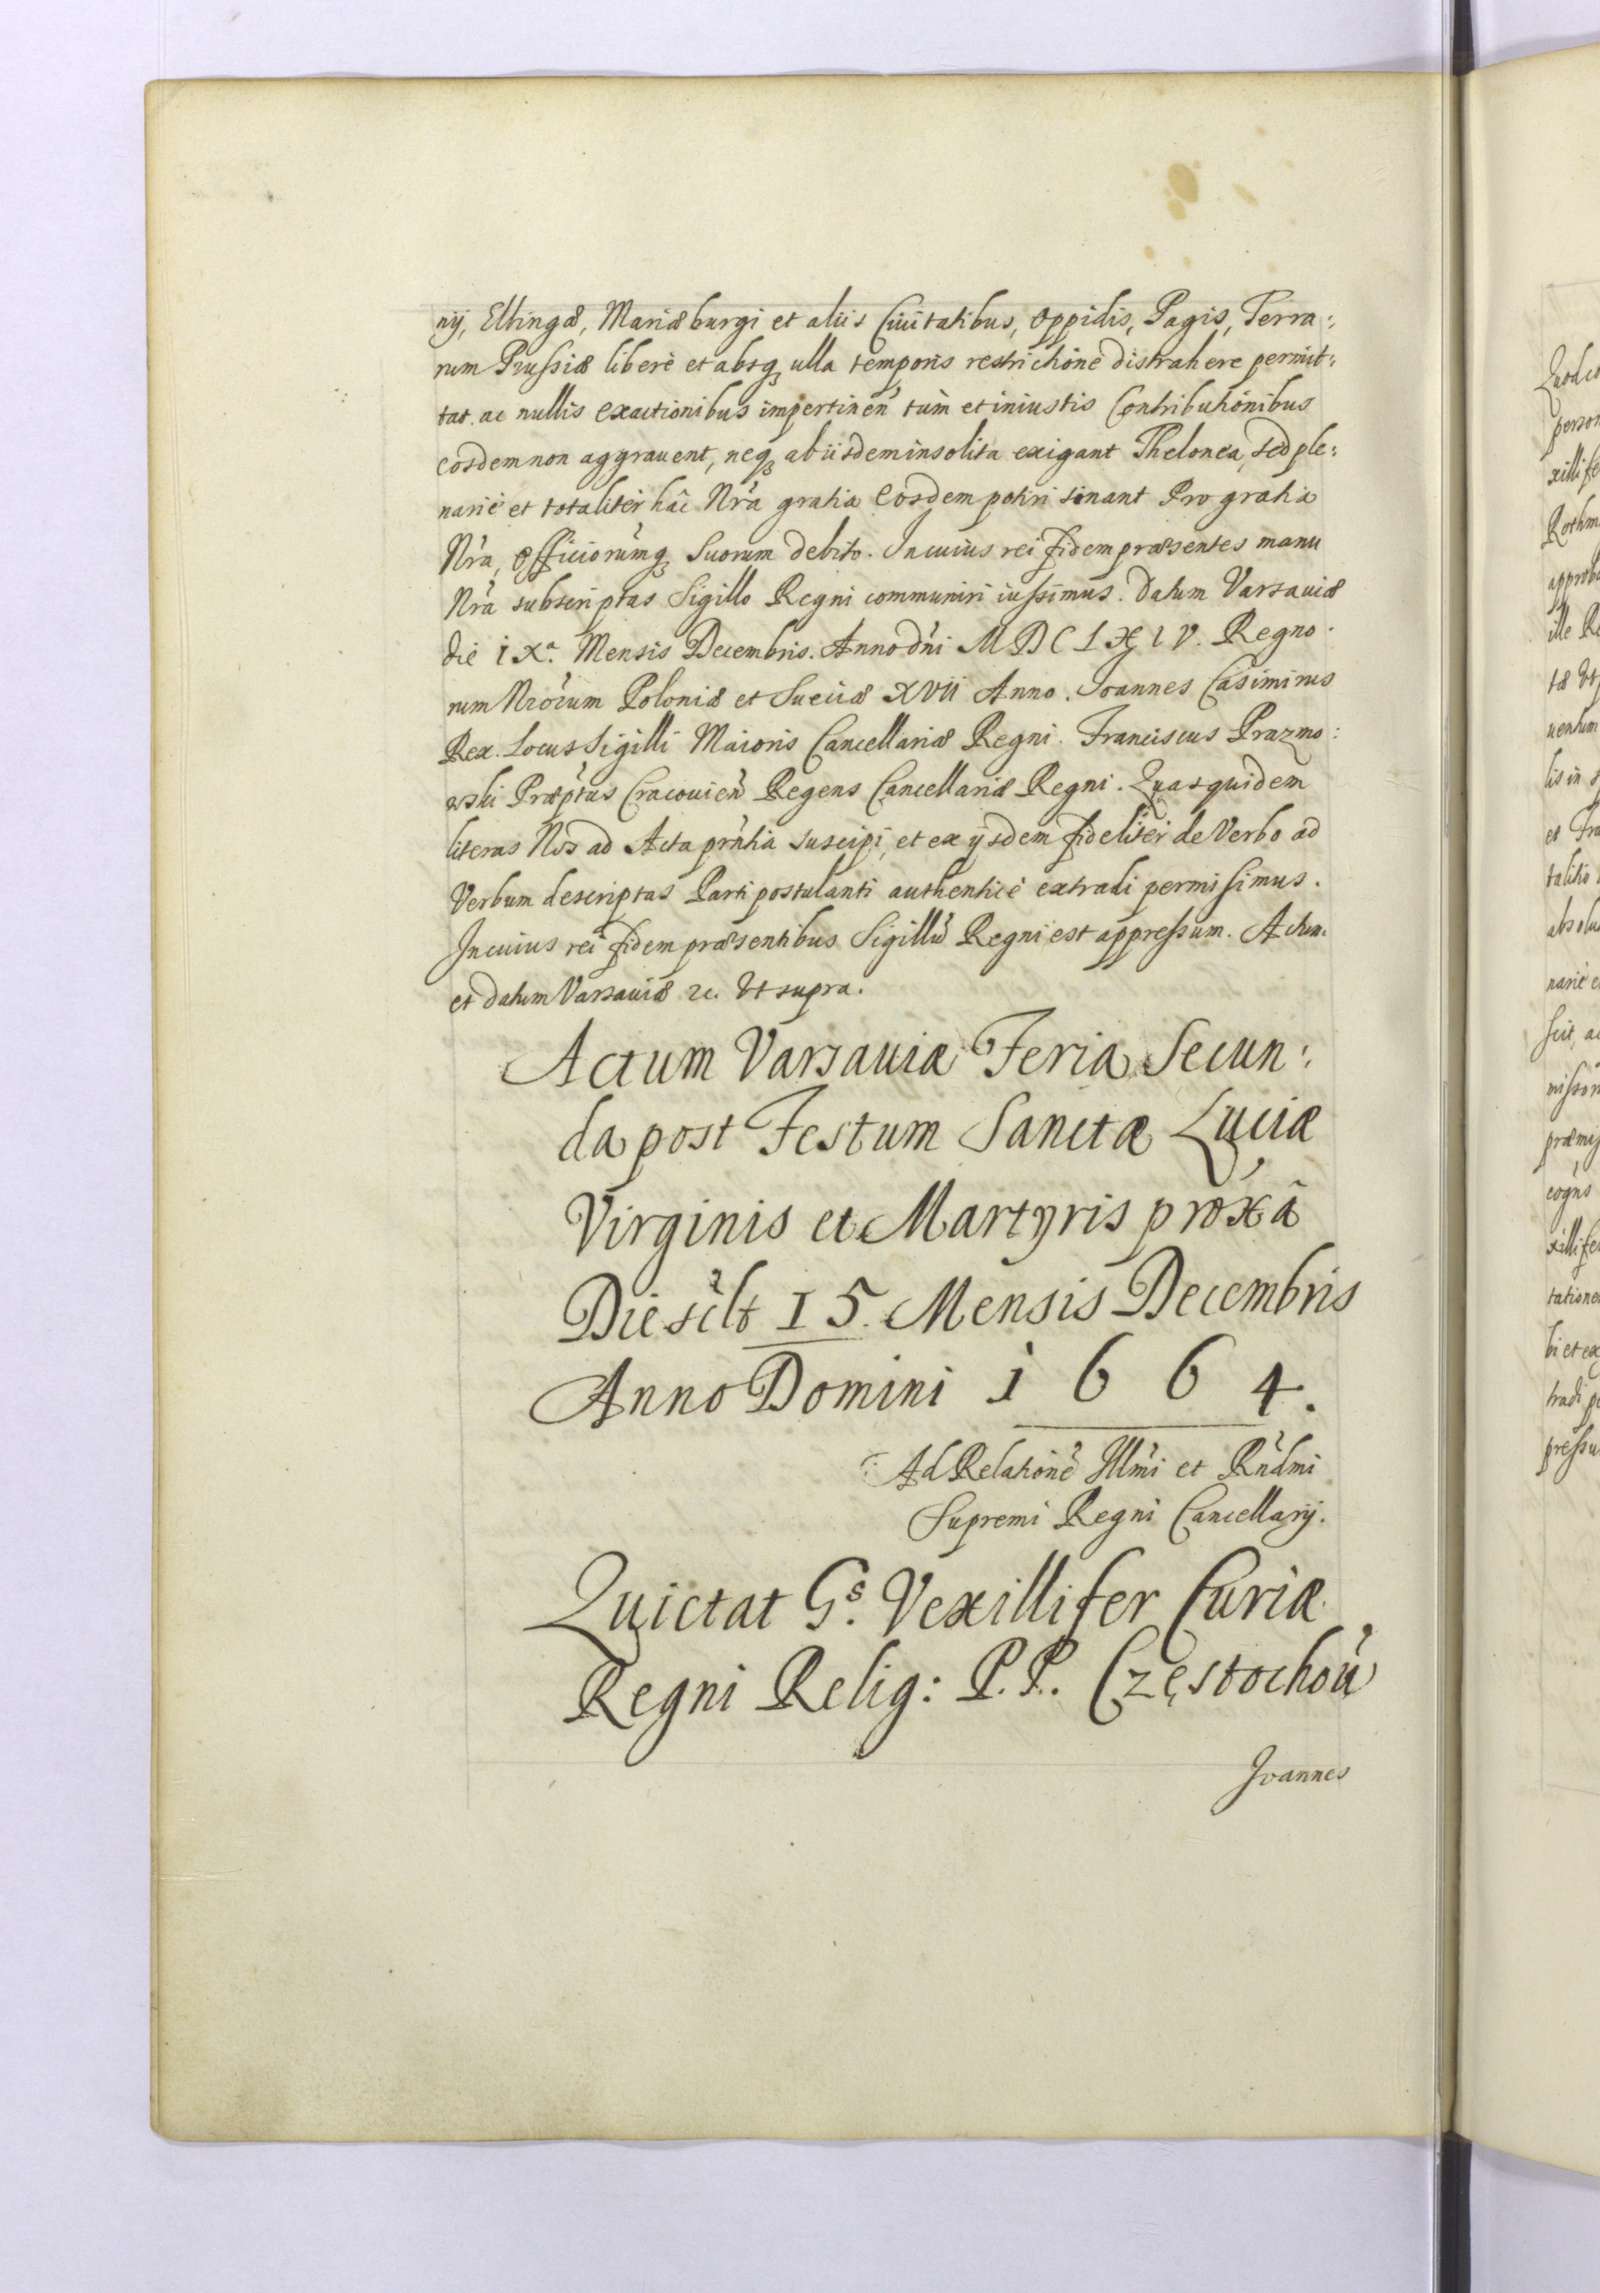 nij, Elbingæ, Mariæburgi et aliis Ciuitatibus, Oppidis, Pagis, Terra:
rum Prussiæ liberè et absq; ulla temporis restrictione distrahere permit:
tat. ac nullis exactionibus impertinen tum et iniustis Contributionibus
eosdem non aggrauent, neq; ab iisdem insolita exigant Thelonea, sed ple:
narie et totaliter hac Nrã gratia eosdem potiri sinant Pro gratia
Nrã, Officiorumq; Suorum debito. In cuius rei fidem præsentes manu
Nrã subscriptas Sigillo Regni communiri iussimus. Datum Varsauiæ
die IXa. Mensis Decembris. Anno dni MDCLXIV. Regno
rum Nrorum Poloniæ et Sueciæ XVII Anno. Joannes Casimirus
Rex. Locus Sigilli Maioris Cancellariæ Regni. Franciscus Prazmo:
wski Præptus Cracouien Regens Cancellariæ Regni. Quas quidem
literas Nos ad Acta prntia suscipi, et ex ijsdem fideliter de Verbo ad
Verbum descriptas Parti postulanti authentice extradi permisimus.
In cuius rei fidem præsentibus Sigillu Regni est appressum. Actum
et datum Varsauiæ &c. Vt supra.
Actum Varsauiæ Feria Secun:
da post Festum Sanctæ Luciæ
Virginis et Martyris proxã
Die silt 15. Mensis Decembris
Anno Domini 1664.
Ad Relatione Illmi et Rndmi
Supremi Regni Cancellarij.
Quietat Gs. Vexillifer Curiæ
Regni Relig: P.P. Częstochou
Joannes
person
xillife
Rothm
approba
ille Re
uentum
lis in
et Fra
talitio
absolu
narie e
scit, ac
præmis
cogns
xillife
tatione
bi et ex
tradi pe
pressu